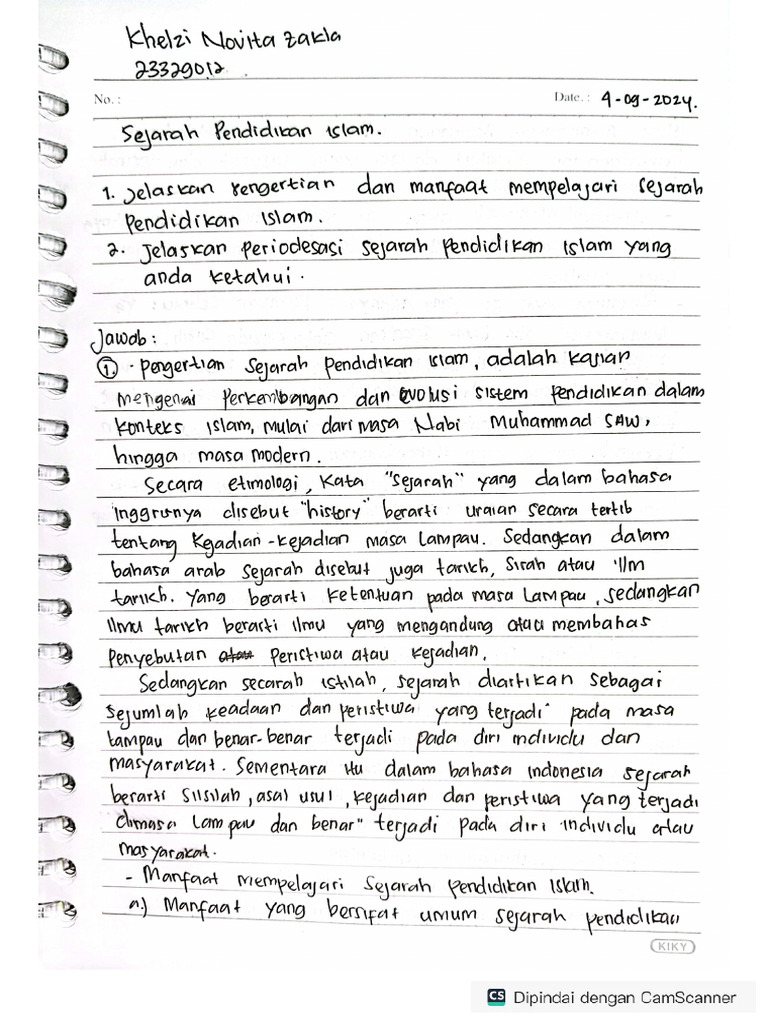 Khelzi Novita Zakla
23329012
No. :
Date. : 4-09-2024.
Sejarah Pendidikan Islam.
1. Jelaskan Pengertian dan manfaat mempelajari sejarah
Pendidikan Islam.
2. Jelaskan periodesasi sejarah pendidikan Islam yang
anda ketahui.
Jawab :
1. - pengertian sejarah pendidikan islam, adalah kajian
mengenai perkembangan dan evolusi sistem pendidikan dalam
konteks islam, mulai dari masa Nabi Muhammad SAW,
hingga masa modern.
Secara etimologi, kata "sejarah" yang dalam bahasa
inggrisnya disebut "history" berarti uraian secara tertib
tentang Kejadian-kejadian masa lampau. Sedangkan dalam
bahasa arab sejarah disebut juga tarikh, sirah atau 'ilm
tarikh. Yang berarti ketentuan pada masa lampau, sedangkan
ilmu tarikh berarti ilmu yang mengandung atau membahas
penyebutan atau peristiwa atau kejadian.
Sedangkan secarah istilah, sejarah diartikan sebagai
sejumlah keadaan dan peristiwa yang terjadi pada masa
lampau dan benar-benar terjadi pada diri individu dan
masyarakat. Sementara itu dalam bahasa indonesia sejarah
berarti silsilah, asal usul, kejadian dan peristiwa yang terjadi
dimasa lampau dan benar" terjadi pada diri individu atau
masyarakat.
- Manfaat mempelajari sejarah pendidikan Islam.
a.) Manfaat yang bersifat umum sejarah pendidikan
KIKY
CS Dipindai dengan CamScanner